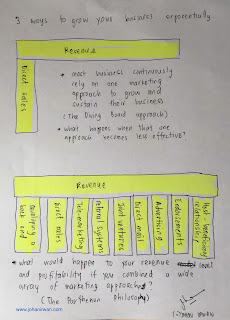 3 ways to grow your business exponentially
Revenue
Direct sales
* most business continuously
rely on one marketing
approach to grow and
sustain their business
(The Diving Board approach)
* what happens when that one
approach becomes less effective?
Revenue
Qualifying a
back end
Direct sales
Tele-marketing
Referral systems
Joint ventures
Direct mail
Advertising
Endorsements
Host-beneficiary
relationship
* what would happen to your revenue level
and profitability if you combined a wide
array of marketing approaches?
(The Parthenon philosophy)
www.johaniwan.com